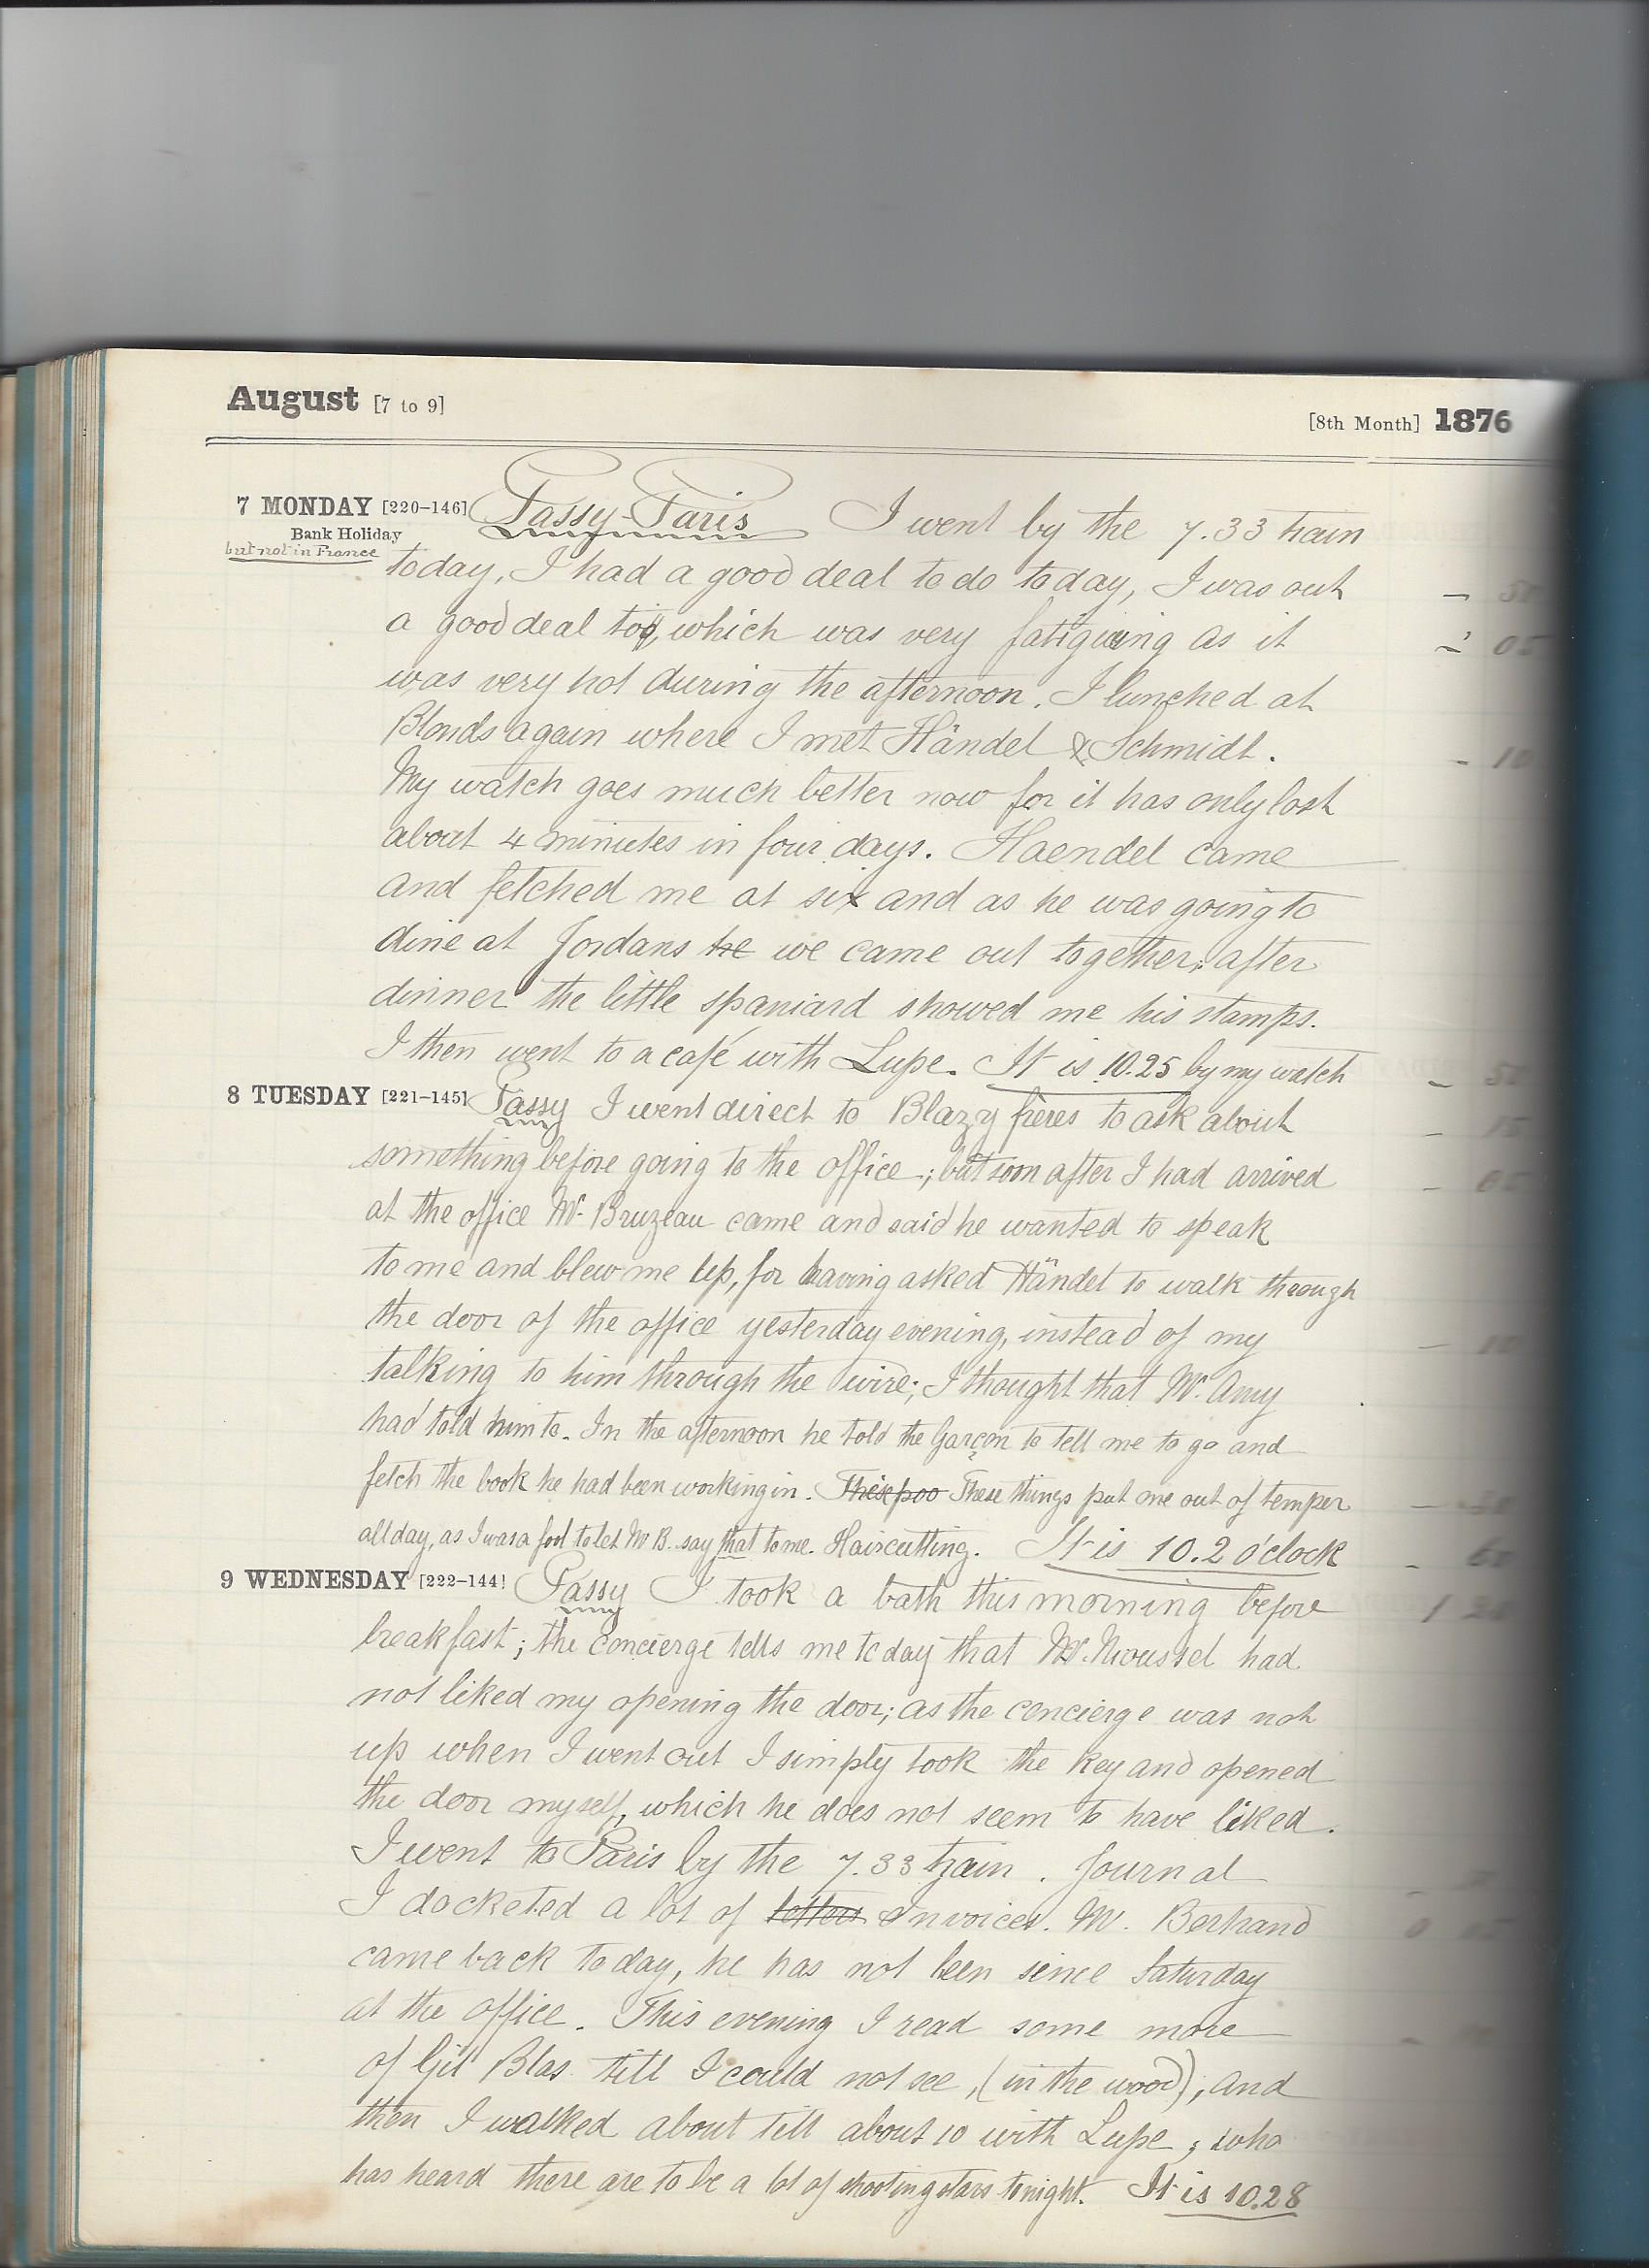 August [7 to 9] [8th Month] 1876
7 MONDAY [220-146] Passy-Paris I went by the 7.33 train
Bank Holiday
but not in France
today, I had a good deal to do today, I was out
a good deal too, which was very fatiguing as it
was very hot during the afternoon. I lunched at
Blonds again where I met Händel & Schmidt.
My watch goes much better now for it has only lost
about 4 minutes in four days. Haendel came
and fetched me at six and as he was going to
dine at Jordans he we came out together; after
dinner the little spaniard showed me his stamps.
I then went to a café with Lupe. It is 10.25 by my watch
8 TUESDAY [221-145] Passy I went direct to Blazy frères to ask about
something before going to the office; but soon after I had arrived
at the office Mr. Bruzeau came and said he wanted to speak
to me and blew me up, for having asked Händel to walk through
the door of the office yesterday evening, instead of my
talking to him through the wire; I thought that Mr. Amy
had told him to. In the afternoon he told the Garçon to tell me to go and
fetch the book he had been working in. These poo These things put me out of temper
all day, as I was a fool to let Mr B. say that to me. Haircutting. It is 10.2 o'clock
9 WEDNESDAY [222-144] Passy I took a bath this morning before
breakfast; the concierge tells me today that Mr. Moussel had
not liked my opening the door; as the concierge was not
up when I went out I simply took the key and opened
the door myself, which he does not seem to have liked.
I went to Paris by the 7.33 train. Journal
I docketed a lot of letters Invoices. Mr. Bertrand
came back today, he has not been since Saturday
at the office. This evening I read some more
of Gil Blas till I could not see, (in the wood), and
then I walked about till about 10 with Lupe; who
has heard there are to be a lot of shooting stars tonight. It is 10.28